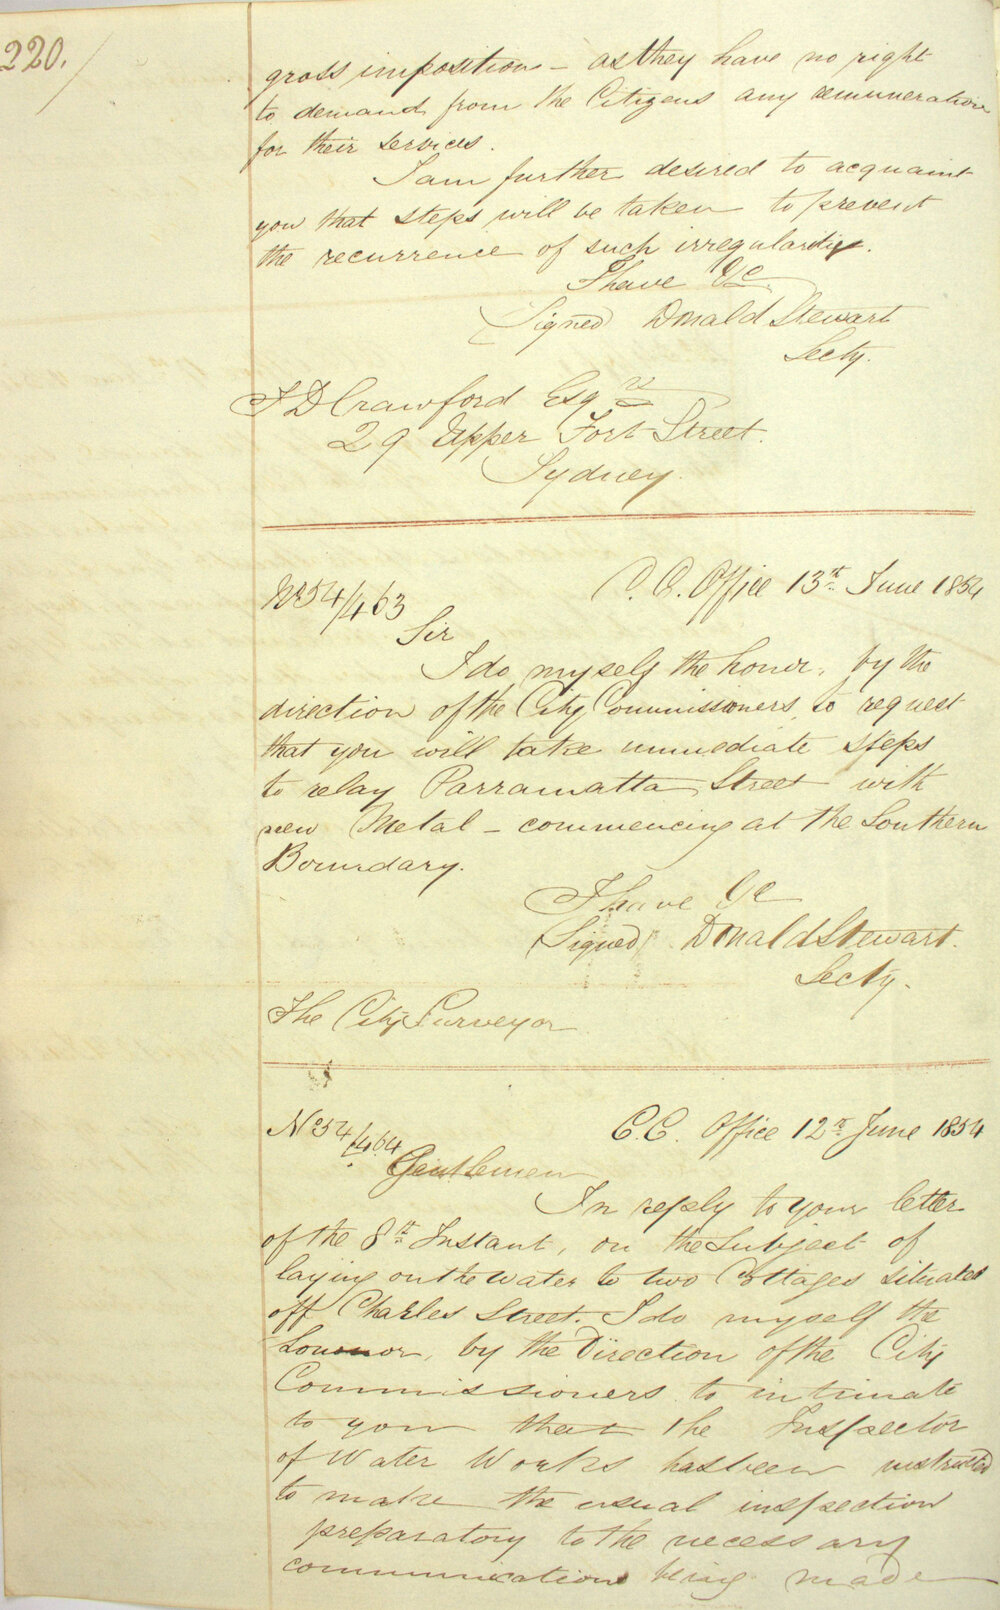 220.
gross imposition - as they have no right
to demand from the Citizens any remuneration
for their services.
I am further desired to acquaint
you that steps will be taken to prevent
the recurrence of such irregularity.
I have &c
Signed Donald Stewart
Secty.
D Crawford Esqre
29 Upper Fort Street.
Sydney.
No 54/463
C. C. Office 13th June 1854
Sir
I do myself the honor, by the
direction of the City Commissioners, to request
that you will take immediate steps
to relay Parramatta Street with
new Metal - commencing at the Southern
Boundary.
I have &c
Signed Donald Stewart.
Secty.
The City Surveyor
No 54/464
C.C. Office 12th June 1854
Gentlemen
In reply to your letter
of the 8th Instant, on the Subject of
laying on the water to two Cottages situated
off Charles Street. I do myself the
honor, by the Direction of the City
Commissioners to intimate
to you that the Inspector
of Water Works has been instructed
to make the usual inspection
preparatory to the necessary
communication being made